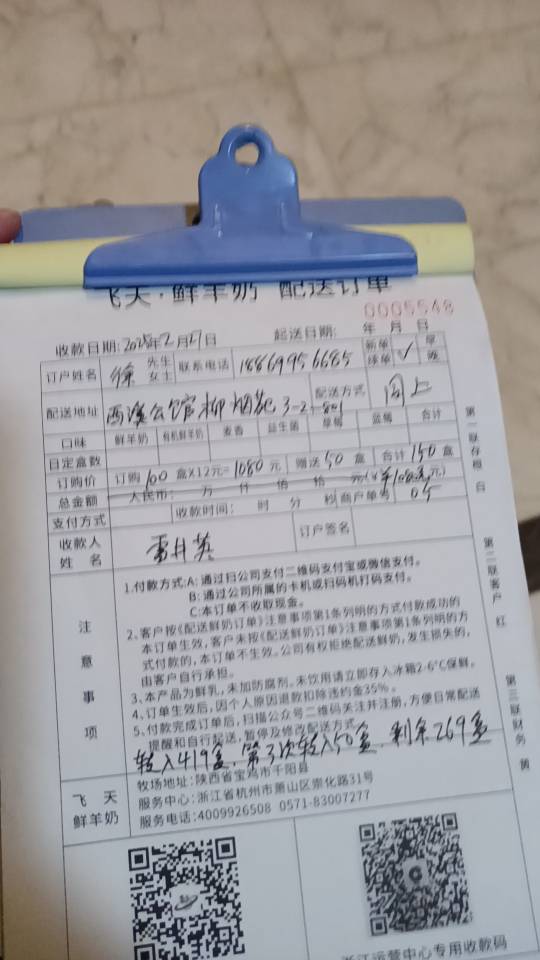 飞天·鲜羊奶 配送订单
0005548
收款日期:2025年2月27日 起送日期: 年 月 日
订户姓名 徐 先生 女士 联系电话 18869956685 新单 续单 √ 早 晚
配送地址 西溪公馆柳烟苑3-2-801 配送方式 同上
口味 鲜羊奶 有机鲜羊奶 麦香 益生菌 草莓 蓝莓 合计
日定盒数
订购价 订购100盒×12元=1080元 赠送50盒 合计150盒
总金额 人民币: 万 仟 佰 拾 元(¥1080元)
支付方式 收款时间: 时 分 秒 商户单号 05
收款人姓名 雷井英 订户签名
注意事项
1.付款方式:A:通过扫公司支付二维码支付宝或微信支付。
B:通过公司所属的卡机或扫码机打码支付。
C:本订单不收取现金。
2、客户按《配送鲜奶订单》注意事项第1条列明的方式付款成功的
本订单生效,客户未按《配送鲜奶订单》注意事项第1条列明的方
式付款的,本订单不生效。公司有权拒绝配送鲜奶,发生损失的,
由客户自行承担。
3、本产品为鲜乳,未加防腐剂。未饮用请立即存入冰箱2-6℃保鲜。
4、订单生效后,因个人原因退款扣除违约金35%。
5、付款完成订单后,扫描公众号二维码关注并注册,方便日常配送
提醒和自行起送,暂停及修改配送方式。
转入419盒,第3次转入50盒,剩余269盒
飞天鲜羊奶
牧场地址:陕西省宝鸡市千阳县
服务中心:浙江省杭州市萧山区崇化路31号
服务电话:4009926508 0571-83007277
第一联存根 白
第二联客户 红
第三联财务 黄
浙江运营中心专用收款码